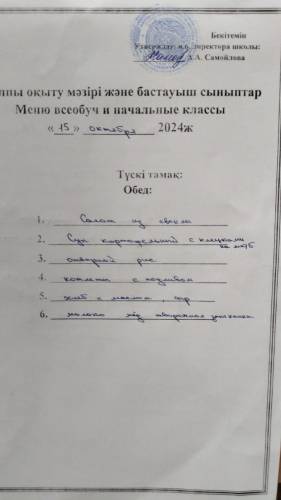 Бекітемін
Утверждаю: и.о. директора школы:
А.А. Самойлова
лпы оқыту мәзірі және бастауыш сыныптар
Меню всеобуч и начальные классы
« 15 » октября 2024ж
Түскі тамақ:
Обед:
1. Салат из свеклы
2. Суп картофельный с клецками
на м/б
3. отварной рис
4. котлеты с подливом
5. хлеб с маслом, сыр
6. молоко